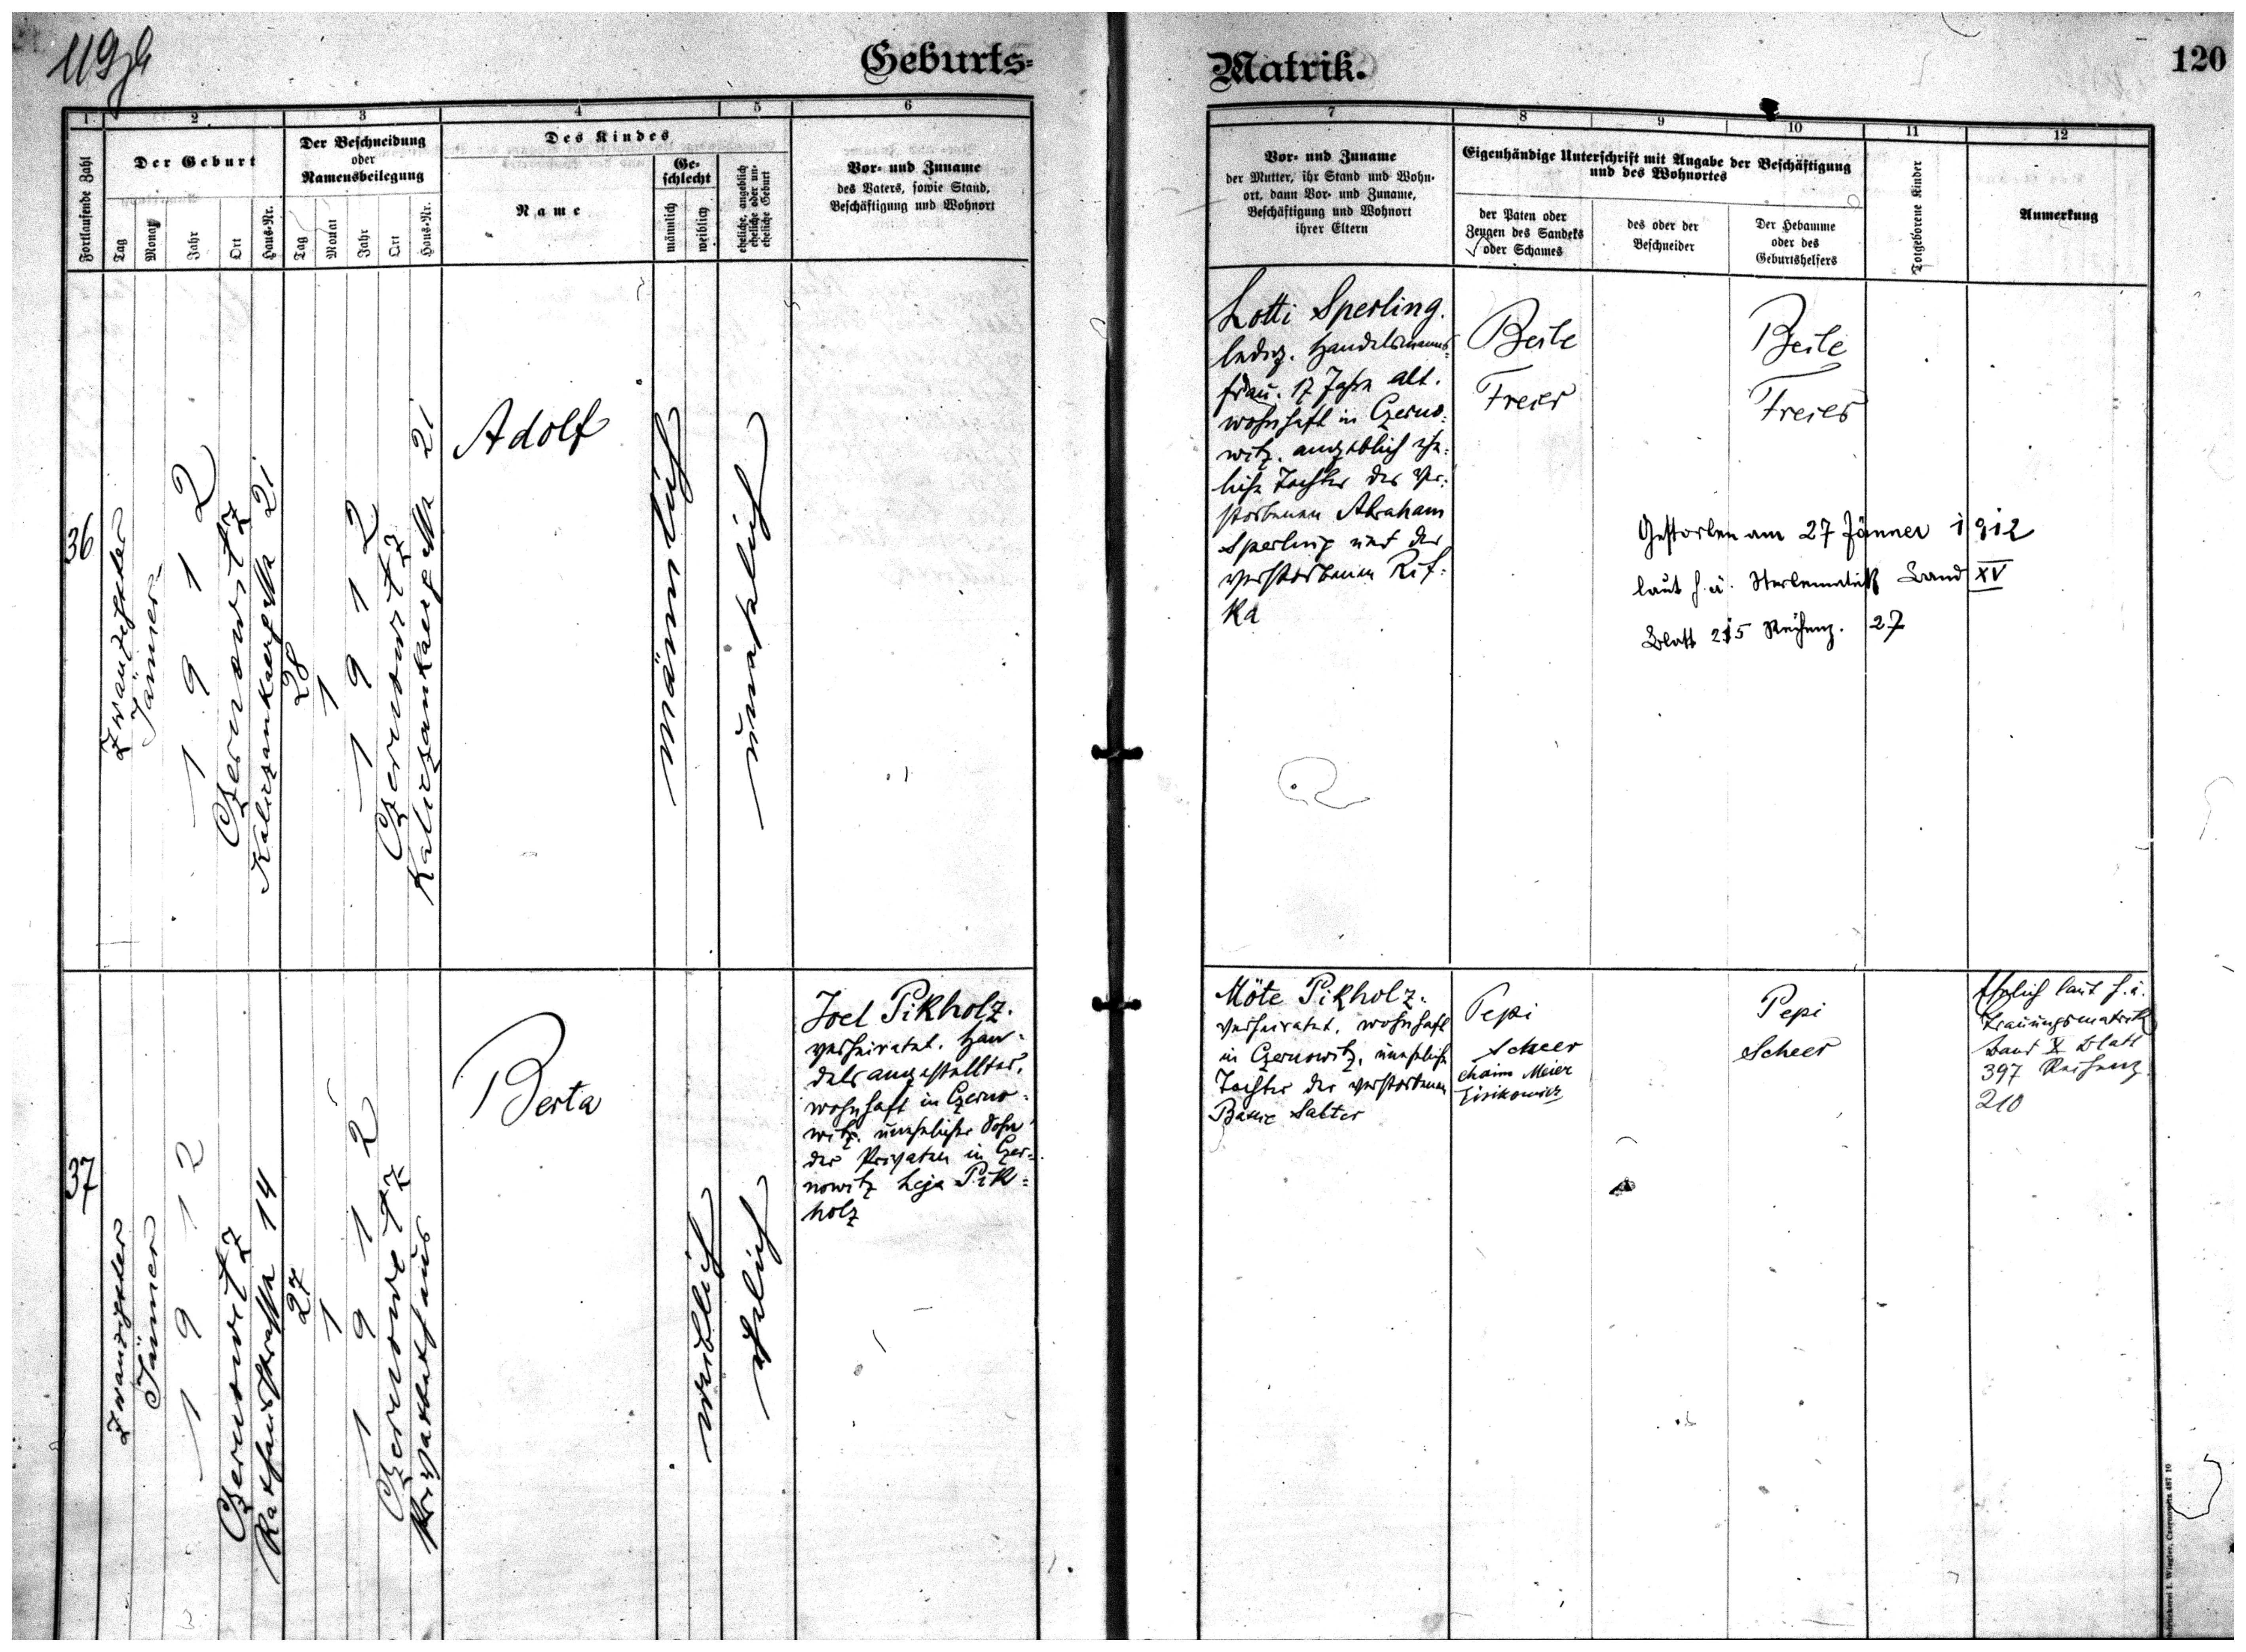 119
Geburts-
Matrik.
120
1
2
3
4
5
6
Fortlaufende Zahl
Der Geburt
Der Beschneidung
oder
Namensbeilegung
Des Kindes
Name
Ge-
schlecht
männlich
weiblich
eheliche, angeblich
eheliche oder un-
eheliche Geburt
Vor- und Zuname
des Vaters, sowie Stand,
Beschäftigung und Wohnort
Tag
Monat
Jahr
Ort
Haus-Nr.
Tag
Monat
Jahr
Ort
Haus-Nr.
7
8
9
10
11
12
Vor- und Zuname
der Mutter, ihr Stand und Wohn-
ort, dann Vor- und Zuname,
Beschäftigung und Wohnort
ihrer Eltern
Eigenhändige Unterschrift mit Angabe der Beschäftigung
und des Wohnortes
der Paten oder
Zeugen des Sandeks
oder Schames
des oder der
Beschneider
Der Hebamme
oder des
Geburtshelfers
Totgeborene Kinder
Anmerkung
36
Zwanzigster
Jänner
1912
Czernowitz
21
28
1
1912
Czernowitz
21
Adolf
männlich
unehelich
Lotti Sperling.
ledig. Handelsmanns-
frau. 17 Jahre alt.
wohnhaft in Czerno-
witz. angeblich ehe-
liche Tochter des ver-
storbenen Abraham
Sperling und der
verstorbenen Rif-
ka
Beile
Freier
Beile
Freier
Gestorben am 27 Jänner 1912
laut h.ä. Sterbematrik Band XV
Blatt 215 Reihenz. 27
37
Zwanzigster
Jänner
1912
Czernowitz
Rathausstrasse 14
27
1
1912
Czernowitz
Privatbethaus
Berta
weiblich
ehelich
Joel Pikholz.
verheiratet. Han-
delsangestellter.
wohnhaft in Czerno-
witz. unehelicher Sohn
der Privaten in Czer-
nowitz Leja Pik-
holz
Möte Pikholz.
verheiratet. wohnhaft
in Czernowitz. uneheliche
Tochter der verstorbenen
Salter
Pepi
Scheer
Chaim Meier
Eisikowicz
Pepi
Scheer
Ehelich laut h.ä.
Trauungsmatrik
Band X Blatt
397 Reihenz.
210
I. Wiegler, Czernowitz. 487 10